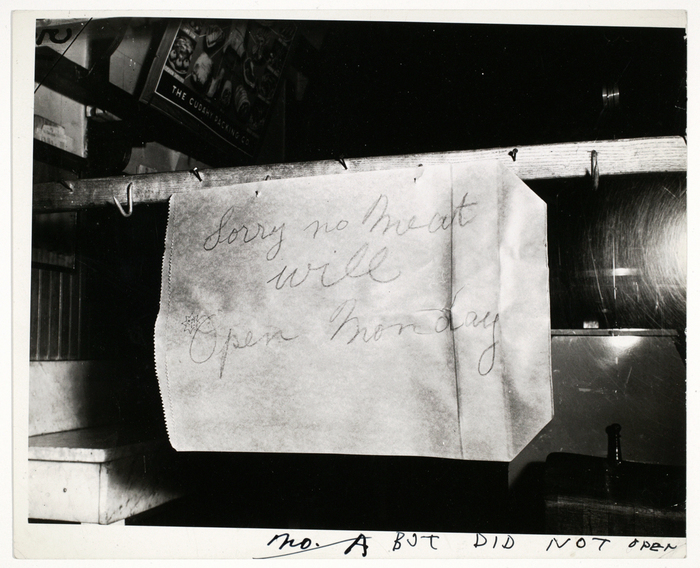 THE CUDAHY PACKING CO.
Sorry no Meat
will
Open Monday
No. A BUT DID NOT OPEN